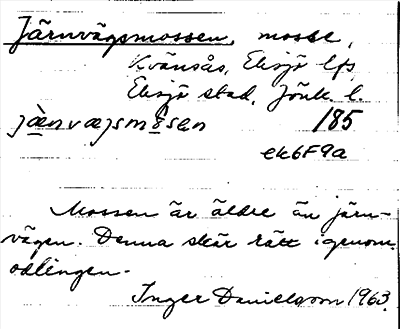 Järnvägsmossen, mosse,
Kvänsås, Eksjö lfs,
Eksjö stad, Jönk. l.
jæ̀nvæjsmåsen 185
ek6F9a
Mossen är äldre än järn-
vägen. Denna skär rätt igenom
odlingen.
Inger Danielsson 1963.